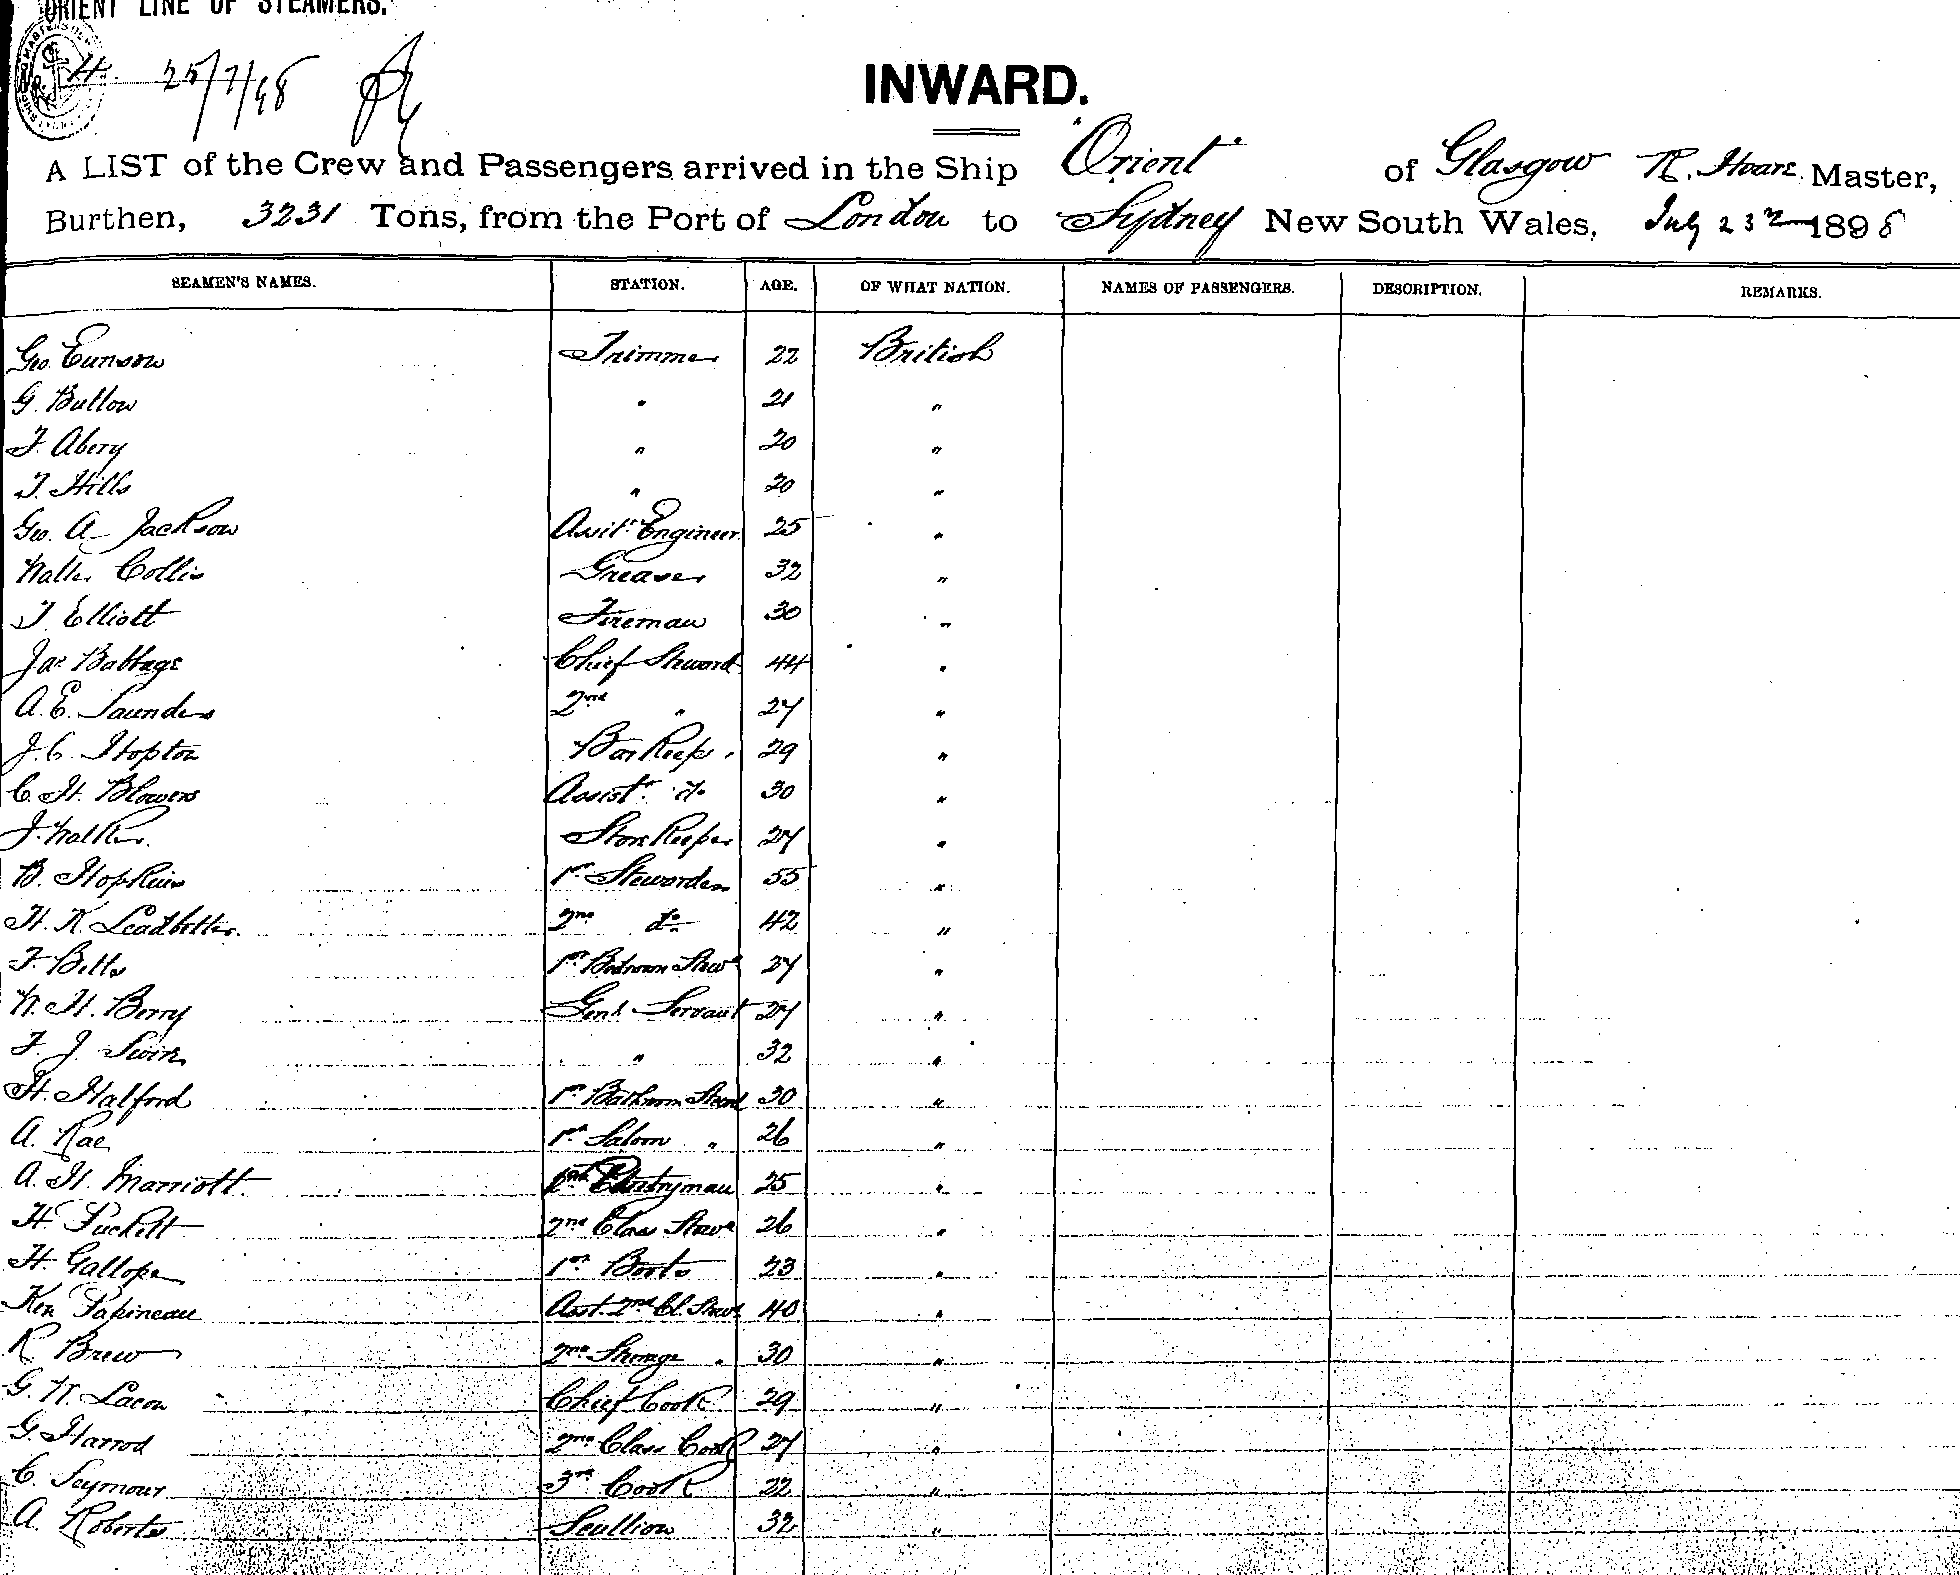 ORIENT LINE OF STEAMERS.
25/7/98
INWARD.
A LIST of the Crew and Passengers arrived in the Ship "Orient" of Glasgow R. Hoare Master,
Burthen, 3231 Tons, from the Port of London to Sydney New South Wales, July 23rd 1898
SEAMEN'S NAMES. STATION. AGE. OF WHAT NATION. NAMES OF PASSENGERS. DESCRIPTION. REMARKS.
Geo. Eunson Trimmer 22 British
G. Bullow " 21 "
F. Abery " 20 "
T. Hills " 20 "
Geo. A. Jackson Assit. Engineer 25 "
Walter Collis Greaser 32 "
T. Elliott Fireman 30 "
Jas Babbage Chief Steward 44 "
A. E. Saunders 2nd " 27 "
J. C. Hopton Bar Keepr. 29 "
C. H. Blowers Assist. do 30 "
J. Walker. Store Keeper 27 "
B. Hopkins 1st Stewardess 55 "
H. K. Leadbetter. 2nd do 42 "
F. Betts 1st Bedroom Stewd 27 "
W. H. Berry Genl. Servant 27 "
F. J. " 32 "
H. Halford 1st Bathroom Steward 30 "
A. Rae 1st Saloon " 26 "
A. H. Marriott. Pantryman 25 "
H. Puckett 2nd Class Stewd 26 "
H. Gallope 1st Boots 23 "
Ken Papineau Asst. 2nd Cl. Stewd 40 "
R. Brew 2nd Steerage " 30 "
G. W. Lacon Chief Cook 29 "
G. Harrod 2nd Class Cook 27 "
C. Seymour 3rd Cook 22 "
A. Roberts Scullion 32 "